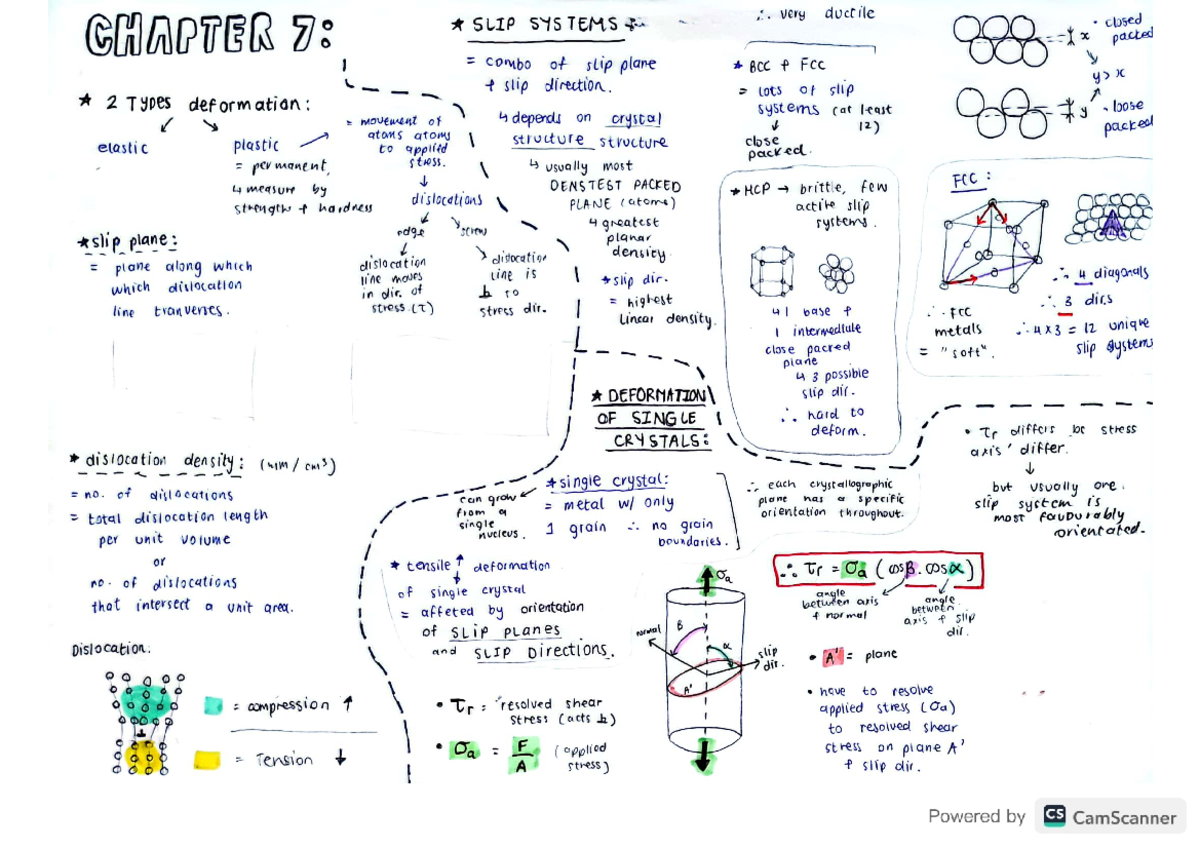 CHAPTER 7:
★ 2 TYPES deformation:
elastic
plastic
= permanent,
↳ measure by
strength + hardness
= movement of
atoms atoms
to applied
stress.
↓
dislocations
edge
screw
dislocation
line moves
in dir. of
stress (τ)
dislocation
line is
⊥ to
stress dir.
★ slip plane:
= plane along which
which dislocation
line tranverses.
★ dislocation density: (mm/cm³)
= no. of dislocations
= total dislocation length
per unit volume
or
no. of dislocations
that intersect a unit area.
Dislocation:
⊥
= compression ↑
= Tension ↓
★ SLIP SYSTEMS
= combo of slip plane
+ slip direction.
↳ depends on crystal
structure structure
↳ usually most
DENSTEST PACKED
PLANE (atoms)
↳ greatest
planar
density.
★ slip dir.
= highest
linear density.
∴ very ductile
★ BCC + FCC
= lots of slip
systems (at least
12)
↓
close
packed.
x
• closed
packed
y > x
y
• loose
packed
★ HCP → brittle, few
active slip
systems.
↳ 1 base +
1 intermediate
close packed
plane
↳ 3 possible
slip dir.
∴ hard to
deform.
FCC:
∴ 4 diagonals
∴ 3 dirs
∴ 4 x 3 = 12 unique
slip systems
∴ FCC
metals
= "soft".
★ DEFORMATION
OF SINGLE
CRYSTALS:
★ single crystal:
= metal w/ only
1 grain ∴ no grain
boundaries.
can grow
from a
single
nucleus.
∴ each crystallographic
plane has a specific
orientation throughout.
★ tensile ↑ deformation
of single crystal
= affeted by orientation
of SLIP PLANES
and SLIP DIRECTIONS.
• τr = resolved shear
stress (acts ⊥)
• σa = F/A (applied
stress)
σa
normal
β
α
slip
dir.
A'
∴ τr = σa (cosβ. cosα)
angle
between axis
+ normal
angle
between
axis + slip
dir.
• A' = plane
• have to resolve
applied stress (σa)
to resolved shear
stress on plane A'
+ slip dir.
• τr differs bc stress
axis' differ.
↓
but usually one
slip system is
most favourably
orientated.
Powered by CS CamScanner